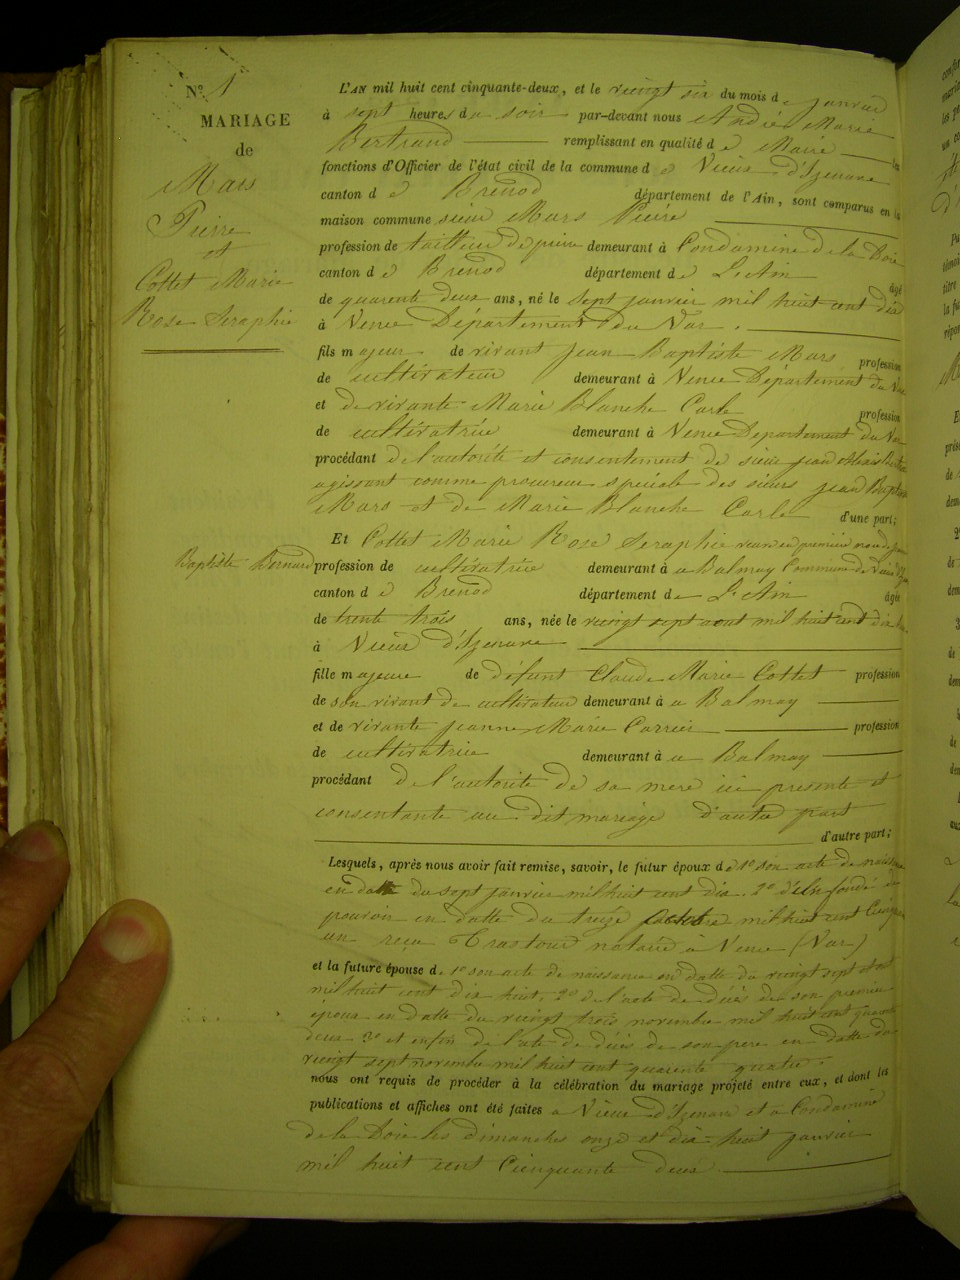 N° 1
MARIAGE
de
Mars
Pierre
et
Cottet Marie
Rose Seraphie
L'AN mil huit cent cinquante-deux, et le vingt six du mois de janvier
à sept heures du soir par-devant nous André Marie
Bertrand remplissant en qualité de Maire les
fonctions d'Officier de l'état civil de la commune de Vieux d'Izenave
canton de Brenod département de l'Ain, sont comparus en la
maison commune sieur Mars Pierre
profession de tailleur de pierre demeurant à Condamine de la Doie
canton de Brenod département de L'Ain âgé
de quarente deux ans, né le sept janvier mil huit cent dix
à Vence Département du Var.
fils majeur de vivant Jean Baptiste Mars profession
de cultivateur demeurant à Vence Département du Var
et de vivante Marie Blanche Carle profession
de cultivatrice demeurant à Vence Departement du Var
procédant de l'autorité et consentement de sieur Jean
agissant comme procureur spéciale des sieurs Jean Baptiste
Mars et de Marie Blanche Carle d'une part;
Et Cottet Marie Rose Seraphie veuve en première noce de Jean
Baptiste Bernard profession de cultivatrice demeurant à a Balmay Commune de Vieux d'Izenave
canton de Brenod département de L'Ain âgée
de trente trois ans, née le vingt sept aout mil huit cent dix huit
à Vieux d'Izenave
fille majeure de défunt Claude Marie Cottet profession
de son vivant de cultivateur demeurant à a Balmay
et de vivante Jeanne Marie Carrier profession
de cultivatrice demeurant à a Balmay
procédant de l'autorité de sa mere ici presente et
consentante au dit mariage d'autre part
d'autre part;
Lesquels, après nous avoir fait remise, savoir, le futur époux de 1° son acte de naissance
en datte du sept janvier mil huit cent dix. 2° fondé de
pouvoir en datte du treize mil huit cent Cinquante
un recu Trastour notaire à Vence (Var)
et la future épouse de 1° son acte de naissance en datte du vingt sept aout
mil huit cent dix huit, 2° de l'acte de décès de son premier
époux en datte du vingt trois novembre mil huit cent quarente
deux 3° et enfin de l'acte de décès de son pere en datte du
vingt sept novembre mil huit cent quarente quatre.
nous ont requis de procéder à la célébration du mariage projeté entre eux, et dont les
publications et affiches ont été faites a Vieux d'Izenave et a Condamine
de la Doie les dimanches onze et dix-huit janvier
mil huit cent Cinquante deux.